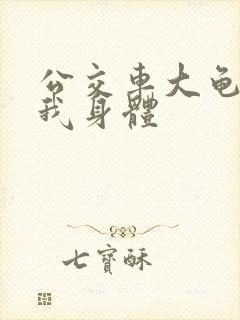 公交車大龟
我身體
七寶酥